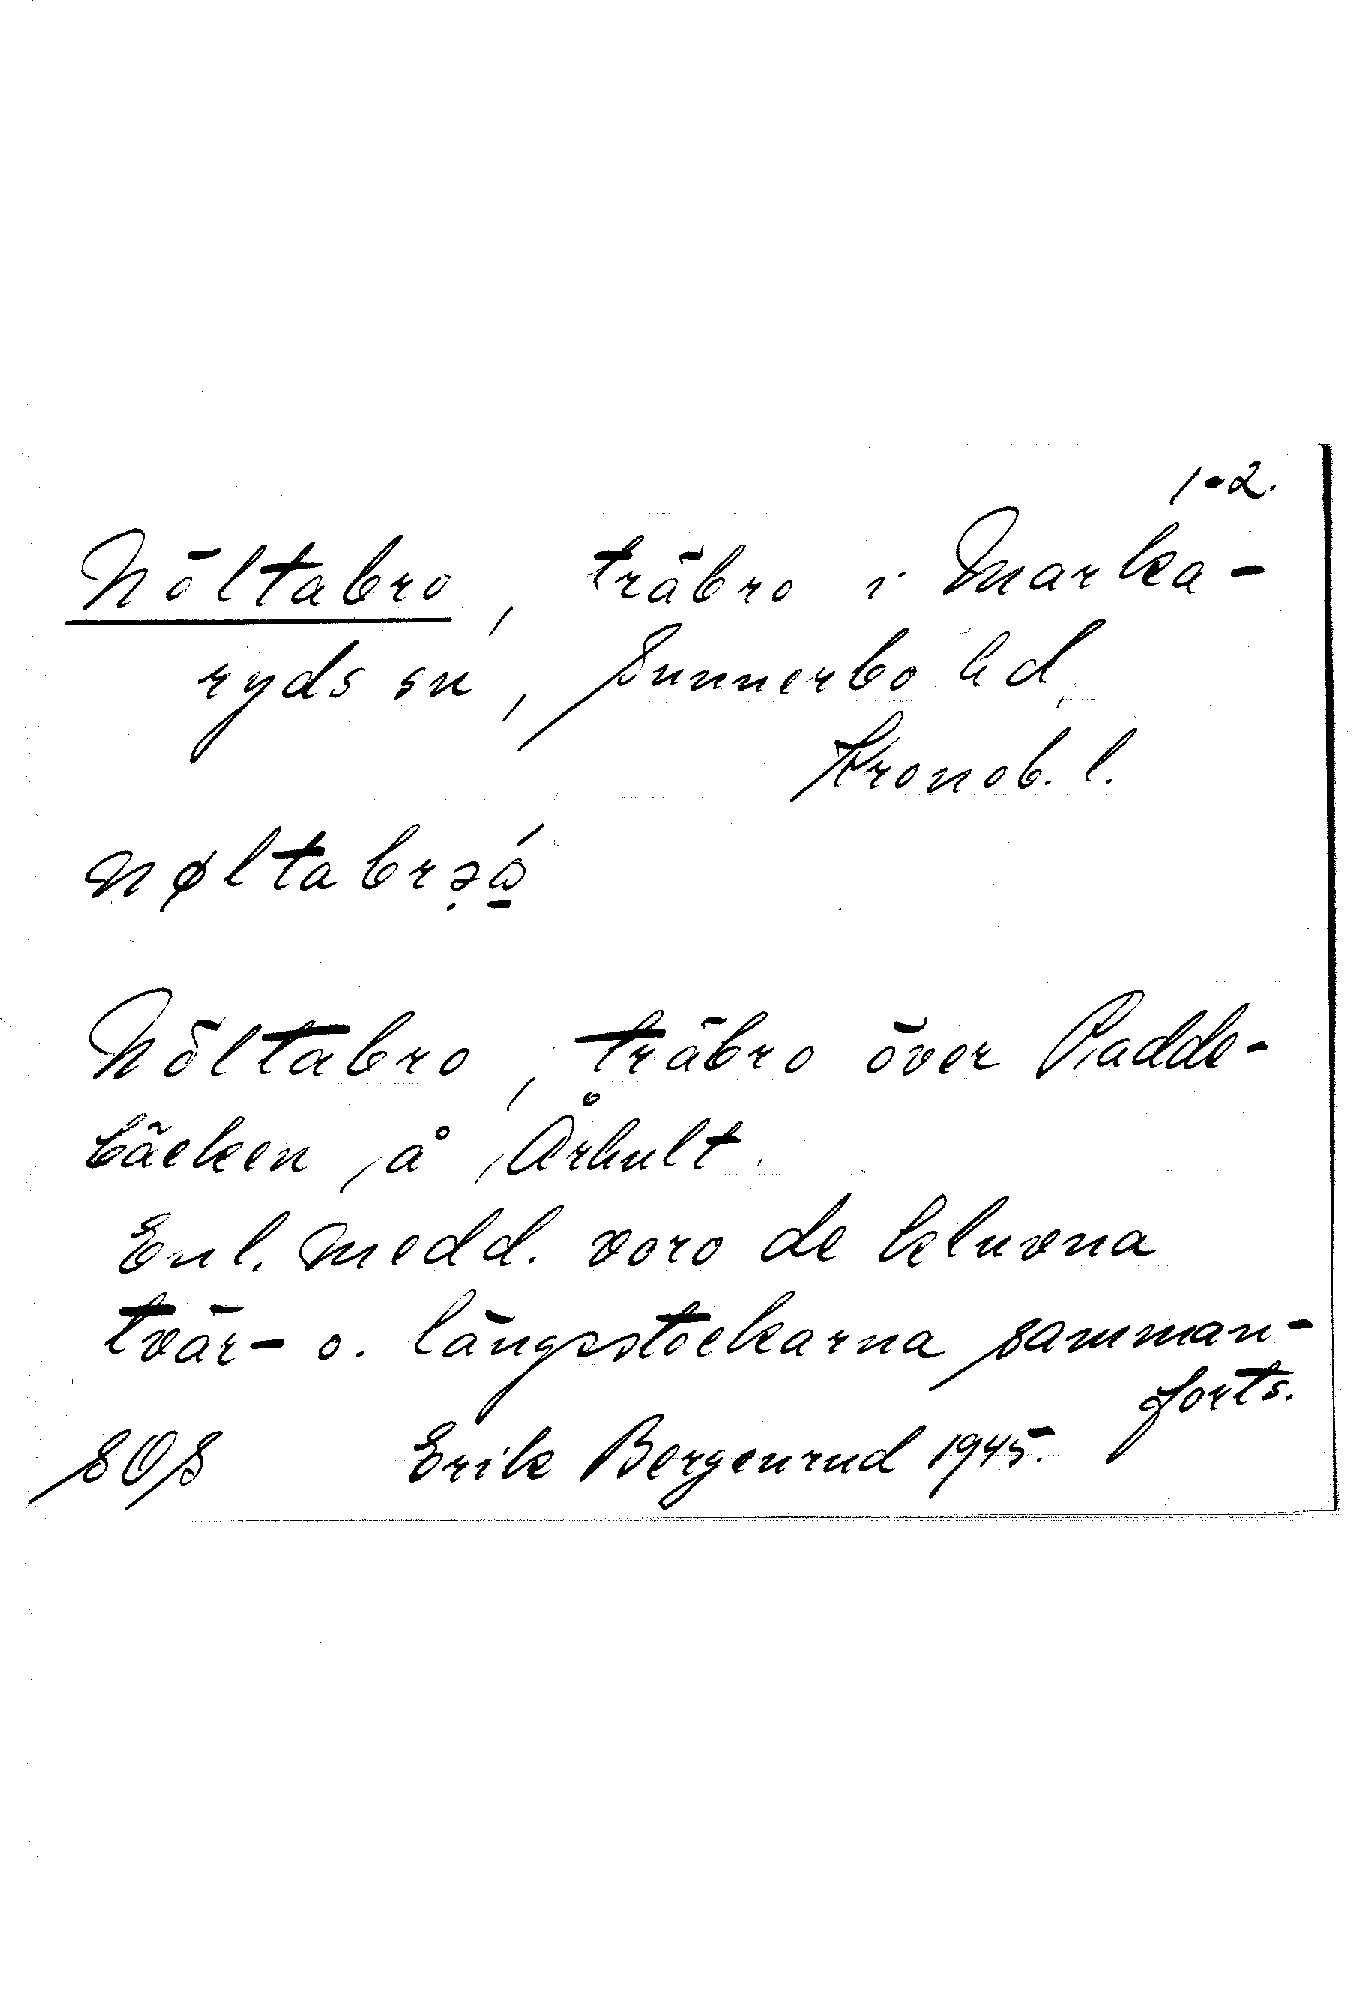 1-2.
Nöltabro, träbro i Marka-
ryds sn, Sunnerbo hd
Kronob. l.
Nöltabro, träbro över Padde-
bäcken, å, Århult.
Enl. medd. voro de kluvna
tvär- o. långsstockarna samman-
forts.
SOS Erik Bergenrud 1945.